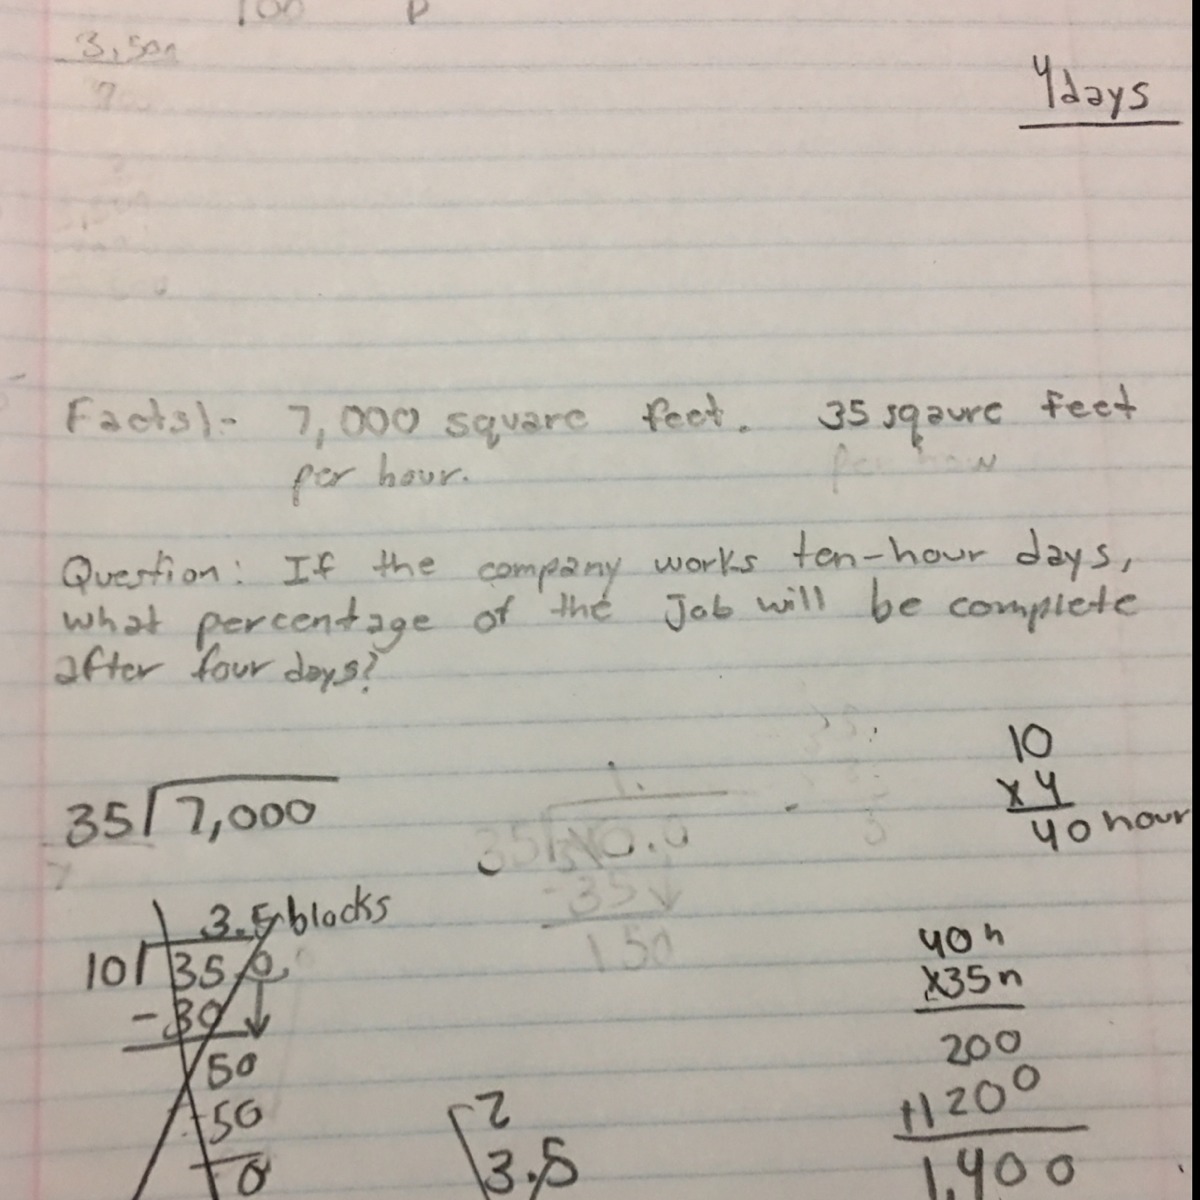 100 P
3,50
7
4days
Facts):- 7,000 square feet. 35 sqaure feet
per hour. per hour
Question: If the company works ten-hour days,
what percentage of the Job will be complete
after four days?
10
x4
40 hour
35 7,000
35
-35
150
3.5 blocks
10 35.0
-30
50
-50
0
40h
x35h
200
+1200
1,400
2
3.5